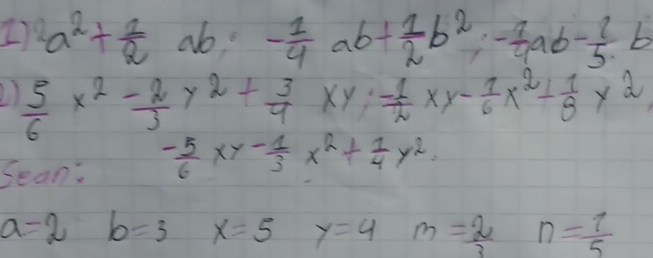 1) 2a² + 1/2 ab; -1/4 ab + 1/2 b²; -1/4 ab - 1/5 b
2) 5/6 x² - 2/3 y² + 3/4 xy; -1/2 xy - 1/6 x² + 1/8 y²,
-5/6 xy - 1/3 x² + 1/4 y².
Sean:
a=2 b=3 x=5 y=4 m=2/3 n=1/5